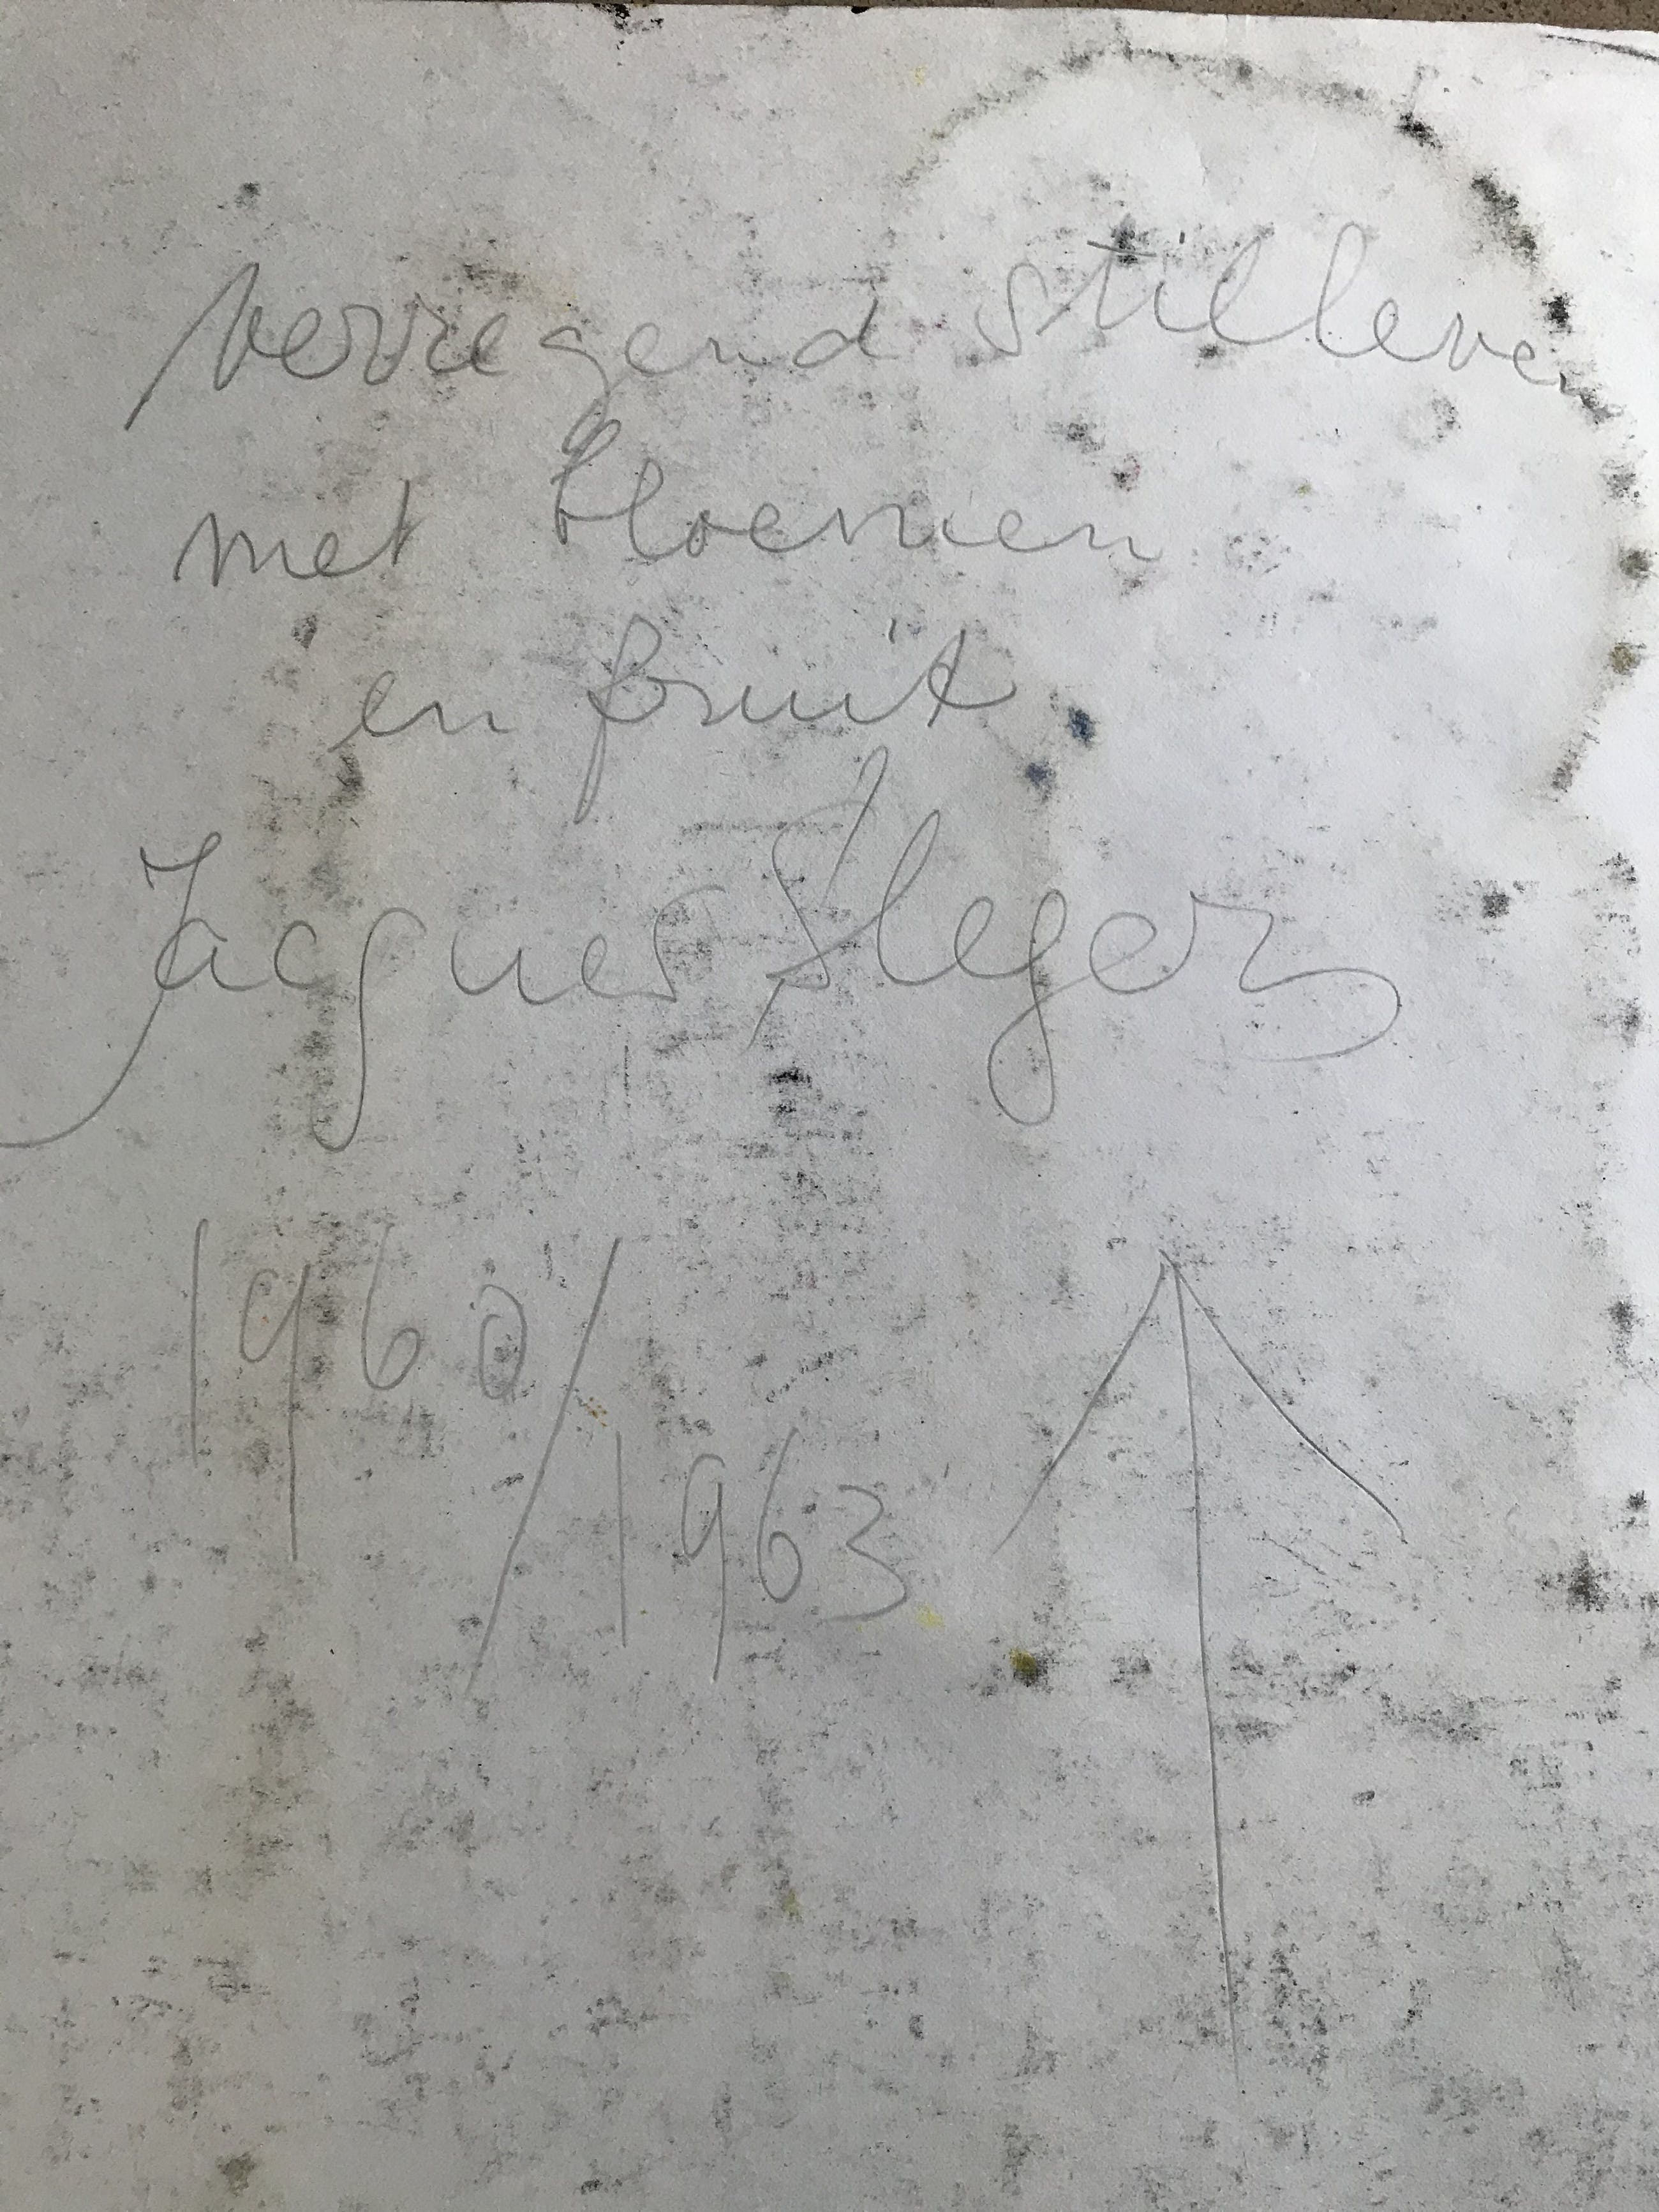 verregend stilleven
met bloemen
en fruit
Jacques Slegers
1960/
1963